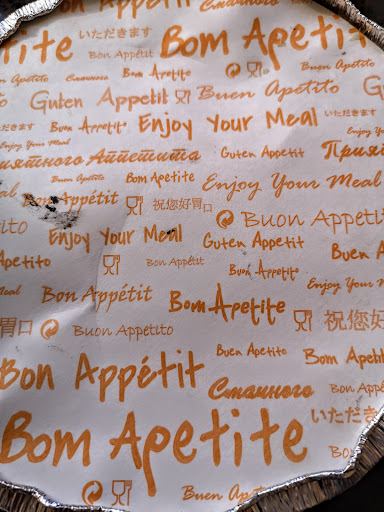 いただきます
Bon Appétit
Bom Apetite
Buon Appetito
Смачного
Bom Apetite
Buen Apetito
Guten Appetit
Buen Apetito
いただきます
Buen Apetito
Enjoy Your Meal
いただきます
Enjoy Your Meal
Приятного Аппетита
Guten Appetit
Buen Apetito
Bom Apetite
Enjoy Your Meal
Bon Appétit
祝您好胃口
Buon Appetito
Enjoy Your Meal
Guten Appetit
Buen
Apetito
Bon Appétit
Buen Apetito
Enjoy Your Meal
Meal
Bon Appétit
Bom Apetite
胃口
Buon Appetito
祝您好
Buen Apetito
Bom Apetite
Bon Appétit
Смачного
Bom Apetite
いただき
Buen